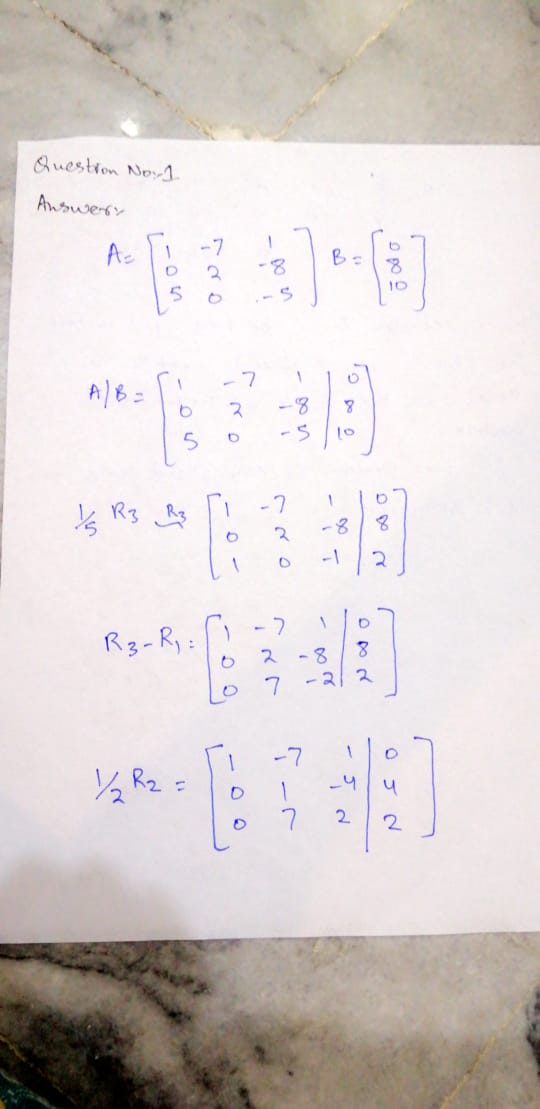 Question No:-1
Answer:-
A= [ 1 -7 1
0 2 -8
5 0 -5 ] B = [ 0
8
10 ]
A/B = [ 1 -7 1 | 0
0 2 -8 | 8
5 0 -5 | 10 ]
1/5 R3 R3 [ 1 -7 1 | 0
0 2 -8 | 8
1 0 -1 | 2 ]
R3-R1 = [ 1 -7 1 | 0
0 2 -8 | 8
0 7 -2 | 2 ]
1/2 R2 = [ 1 -7 1 | 0
0 1 -4 | 4
0 7 2 | 2 ]